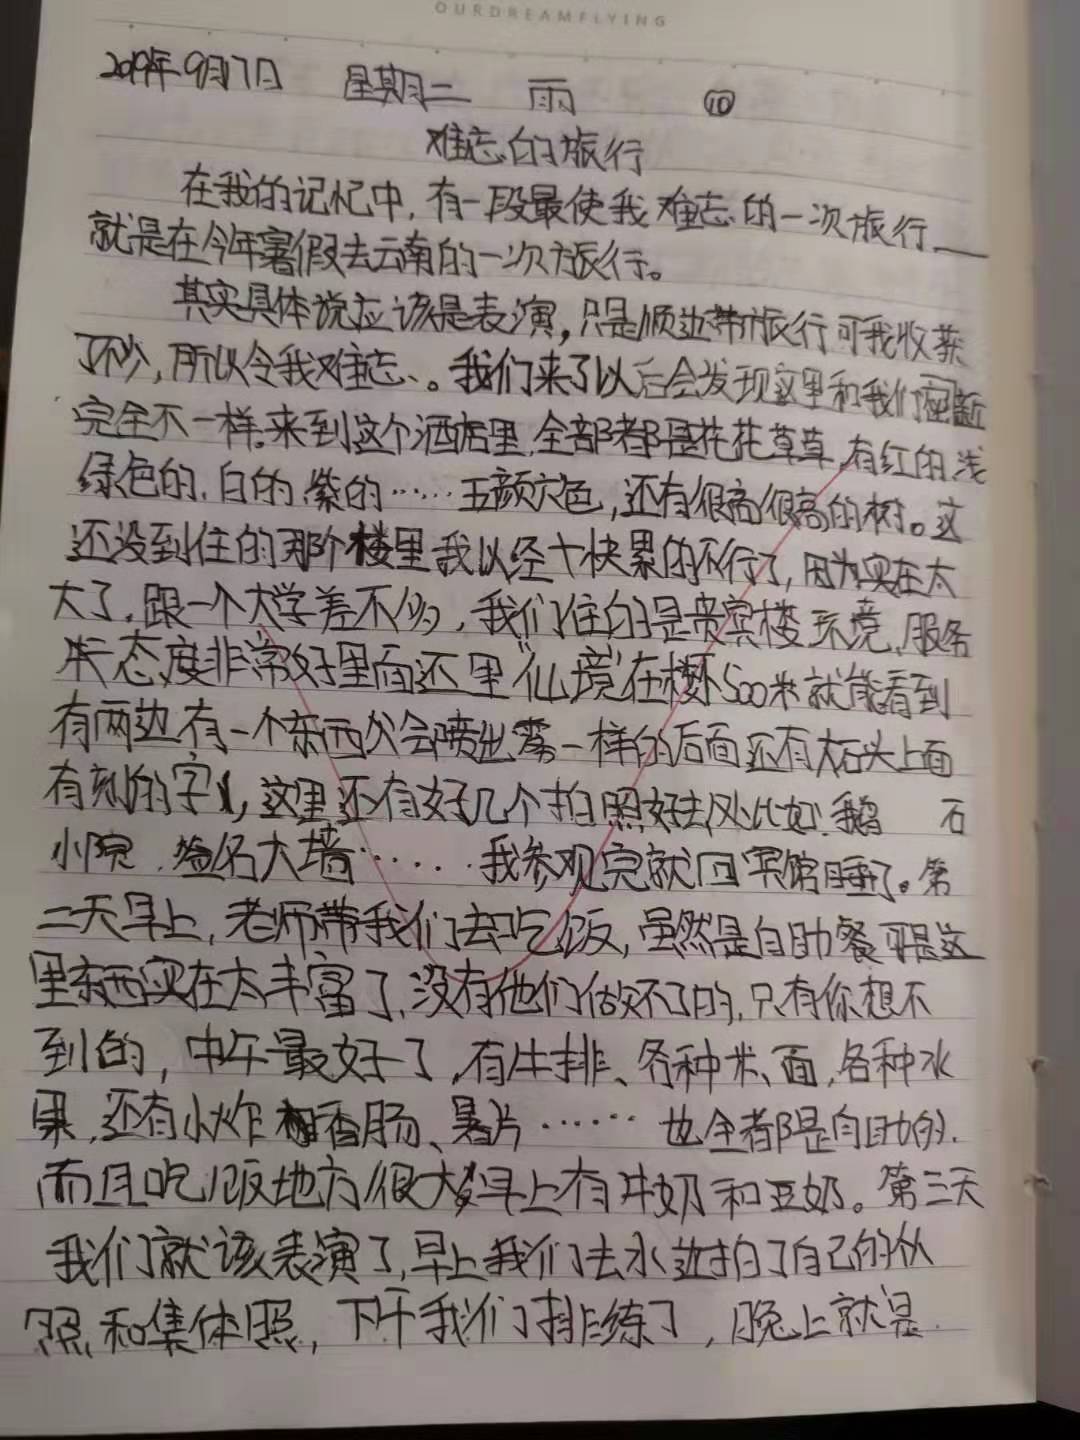 OURDREAMFLYING
2019年9月7日 星期二 雨 ⑩
难忘的旅行
在我的记忆中,有一段最使我难忘的一次旅行——
就是在今年暑假去云南的一次旅行。
其实具体说应该是表演,只是顺边带旅行可我收获
了不少,所以令我难忘、。我们来了以后会发现这里和我们
完全不一样。来到这个酒店里,全部都是花花草草,有红的浅
绿色的,白的紫的……五颜六色,还有很高很高的树。这
还没到住的那个楼里我以经十快累的不行了,因为实在太
大了,跟一个大学差不多,我们住的是贵宾楼环境,服务
态度非常好里面还里“仙境”在楼外500米就能看到
有两边有一个东西会喷出雾一样的后面还有大石头上面
有刻的字,这里还有好几个拍照好去处比如:鹅 石
小院,签名大墙……我参观完就回宾馆睡了。第
二天早上,老师带我们去吃饭,虽然是自助餐可是这
里东西实在太丰富了,没有他们做不了的,只有你想不
到的,中午最好了,有牛排、各种米、面,各种水
果,还有小炸香肠、薯片……也全都是自助的,
而且吃饭地方很大早上有牛奶和豆奶。第三天
我们就该表演了,早上我们去水边拍了自己的
照和集体照,下午我们排练了,晚上就是